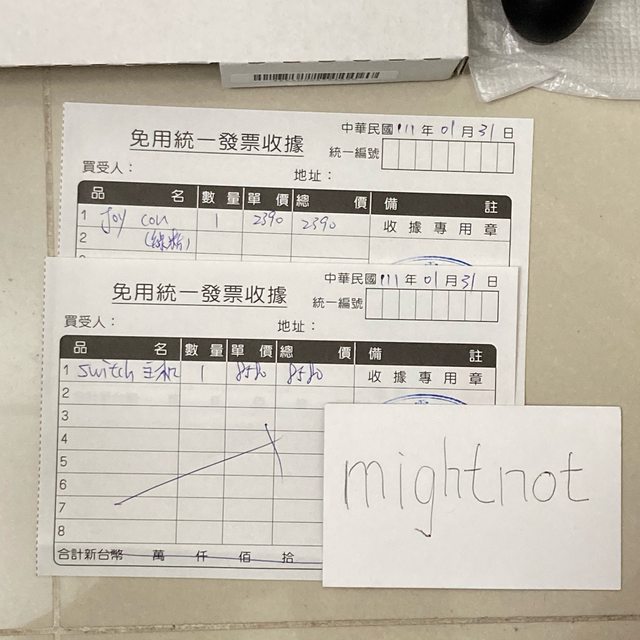 中華民國111年01月31日
免用統一發票收據
統一編號
買受人：
地址：
品名 數量 單價 總價 備註
1 Joy con 1 2390 2390 收據專用章
2 (綠粉)
中華民國111年01月31日
免用統一發票收據
統一編號
買受人：
地址：
品名 數量 單價 總價 備註
1 Switch 主机 1 8580 8580 收據專用章
2
3
4
5
6
7
8
合計新台幣 萬 仟 佰 拾
mightnot